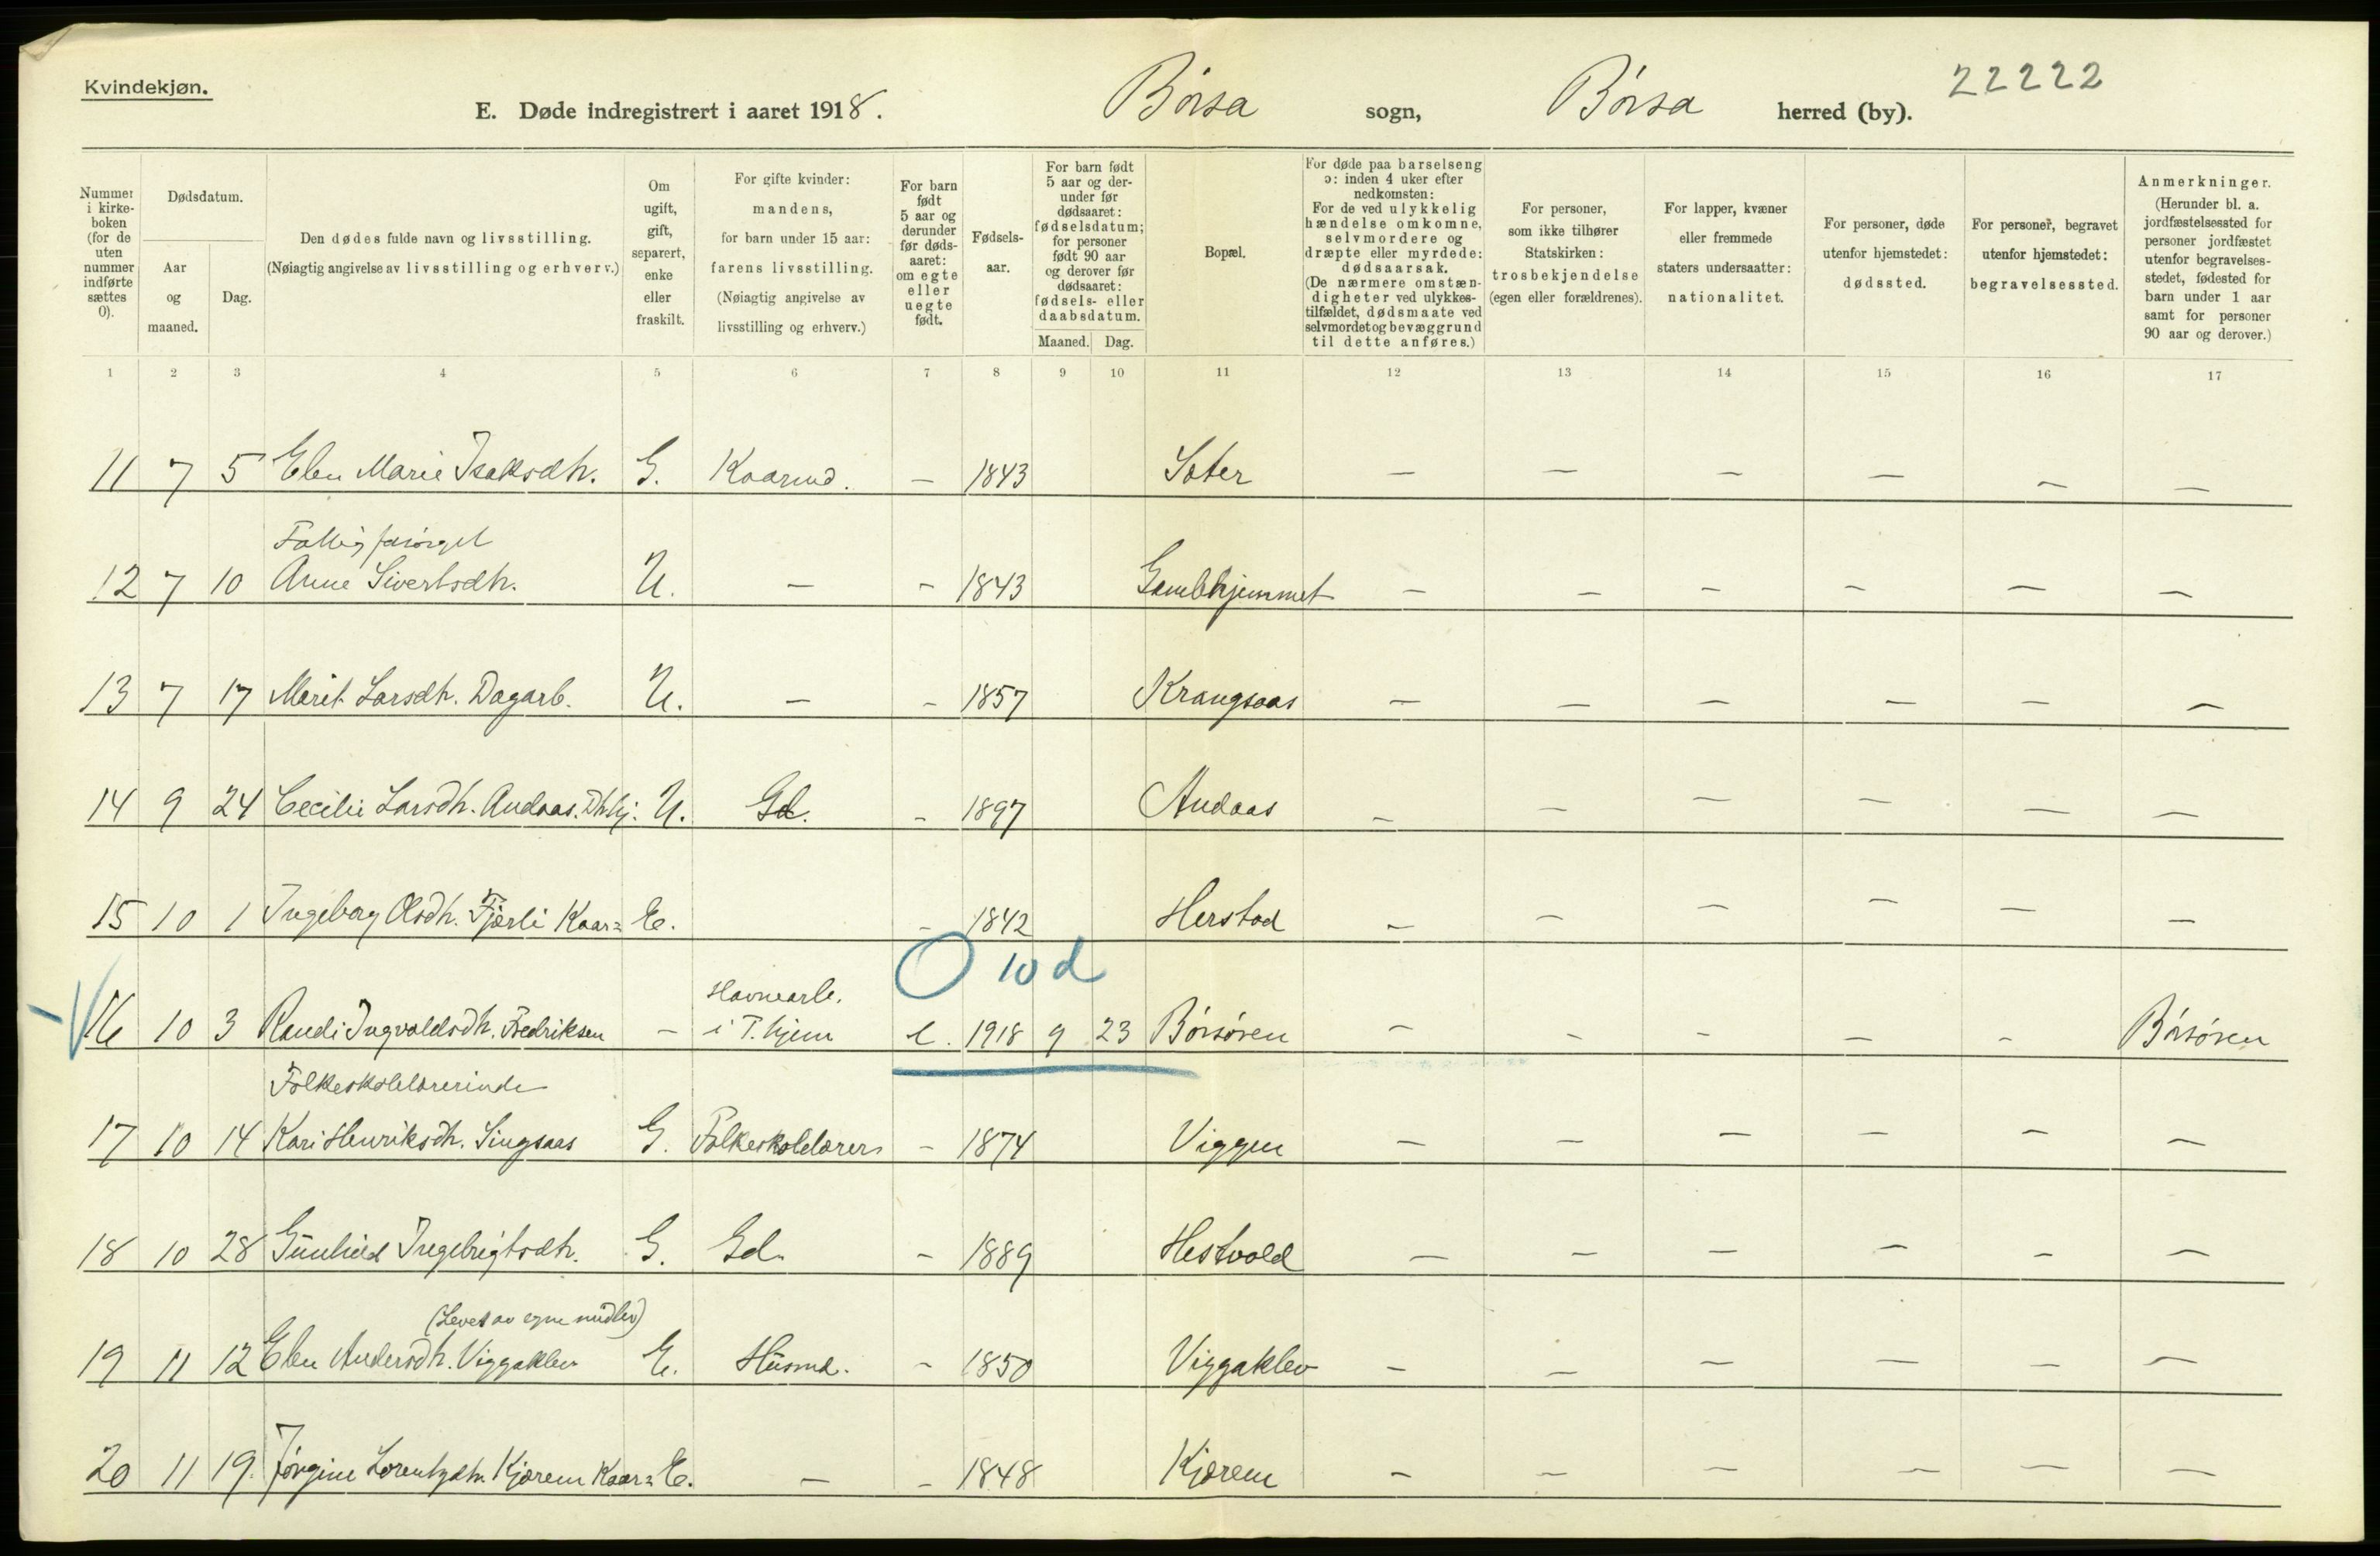 Kvindekjøn.
E. Døde indregistrert i aaret 1918. Børsa sogn, Børsa herred (by). 22222
Nummer i kirkeboken (for de uten nummer indførte sættes 0).
Dødsdatum.
Aar og maaned.
Dag.
Den dødes fulde navn og livsstilling.
(Nøiagtig angivelse av livsstilling og erhverv.)
Om ugift, gift, separert, enke eller fraskilt.
For gifte kvinder: mandens, for barn under 15 aar: farens livsstilling. (Nøiagtig angivelse av livsstilling og erhverv.)
For barn født 5 aar og derunder før dødsaaret: om egte eller uegte født.
Fødselsaar.
For barn født 5 aar og derunder før dødsaaret: fødselsdatum; for personer født 90 aar og derover før dødsaaret: fødsels- eller daabsdatum.
Maaned. Dag.
Bopæl.
For døde paa barselseng ɔ: inden 4 uker efter nedkomsten: For de ved ulykkelig hændelse omkomne, selvmordere og dræpte eller myrdede: dødsaarsak. (De nærmere omstændigheter ved ulykkestilfældet, dødsmaate ved selvmordet og bevæggrund til dette anføres.)
For personer, som ikke tilhører Statskirken: trosbekjendelse (egen eller forældrenes).
For lapper, kvæner eller fremmede staters undersaatter: nationalitet.
For personer, døde utenfor hjemstedet: dødssted.
For personer, begravet utenfor hjemstedet: begravelsessted.
Anmerkninger. (Herunder bl. a. jordfæstelsessted for personer jordfæstet utenfor begravelsesstedet, fødested for barn under 1 aar samt for personer 90 aar og derover.)
1 2 3 4 5 6 7 8 9 10 11 12 13 14 15 16 17
11 7 5 Elen Marie Isaksdtr. G. Kaarmd. — 1843 Sæter — — — — — —
Fattigforsørget
12 7 10 Anne Sivertsdtr. U. — — 1843 Gamlehjemmet — — — — — —
13 7 17 Marit Larsdtr. Dagarb. U. — — 1857 Krangsaas — — — — — —
14 9 24 Cecilie Larsdtr. Andaas. U. Gd. — 1897 Andaas — — — — — —
15 10 1 Ingeborg Olsdtr. Fjærli Kaar= E. — 1842 Herstad — — — — — —
O 10 d
Havnearb.
16 10 3 Randi Ingvaldsdtr. Fredriksen — i T.hjem e. 1918 9 23 Børsøren — — — — — Børsøren
Folkeskolelærerinde
17 10 14 Kari Henriksdtr. Singsaas G. Folkeskolelærer — 1874 Viggen — — — — — —
18 10 28 Gunhild Ingebrigtsdtr. G. Gd. — 1889 Hestvold — — — — — —
(Levet av egne midler)
19 11 12 Elen Andersdtr. Viggaklev E. Husmd. — 1850 Viggaklev — — — — — —
20 11 19. Jørgine Lorentzdtr. Kjærem Kaar= E. — — 1848 Kjærem — — — — — —